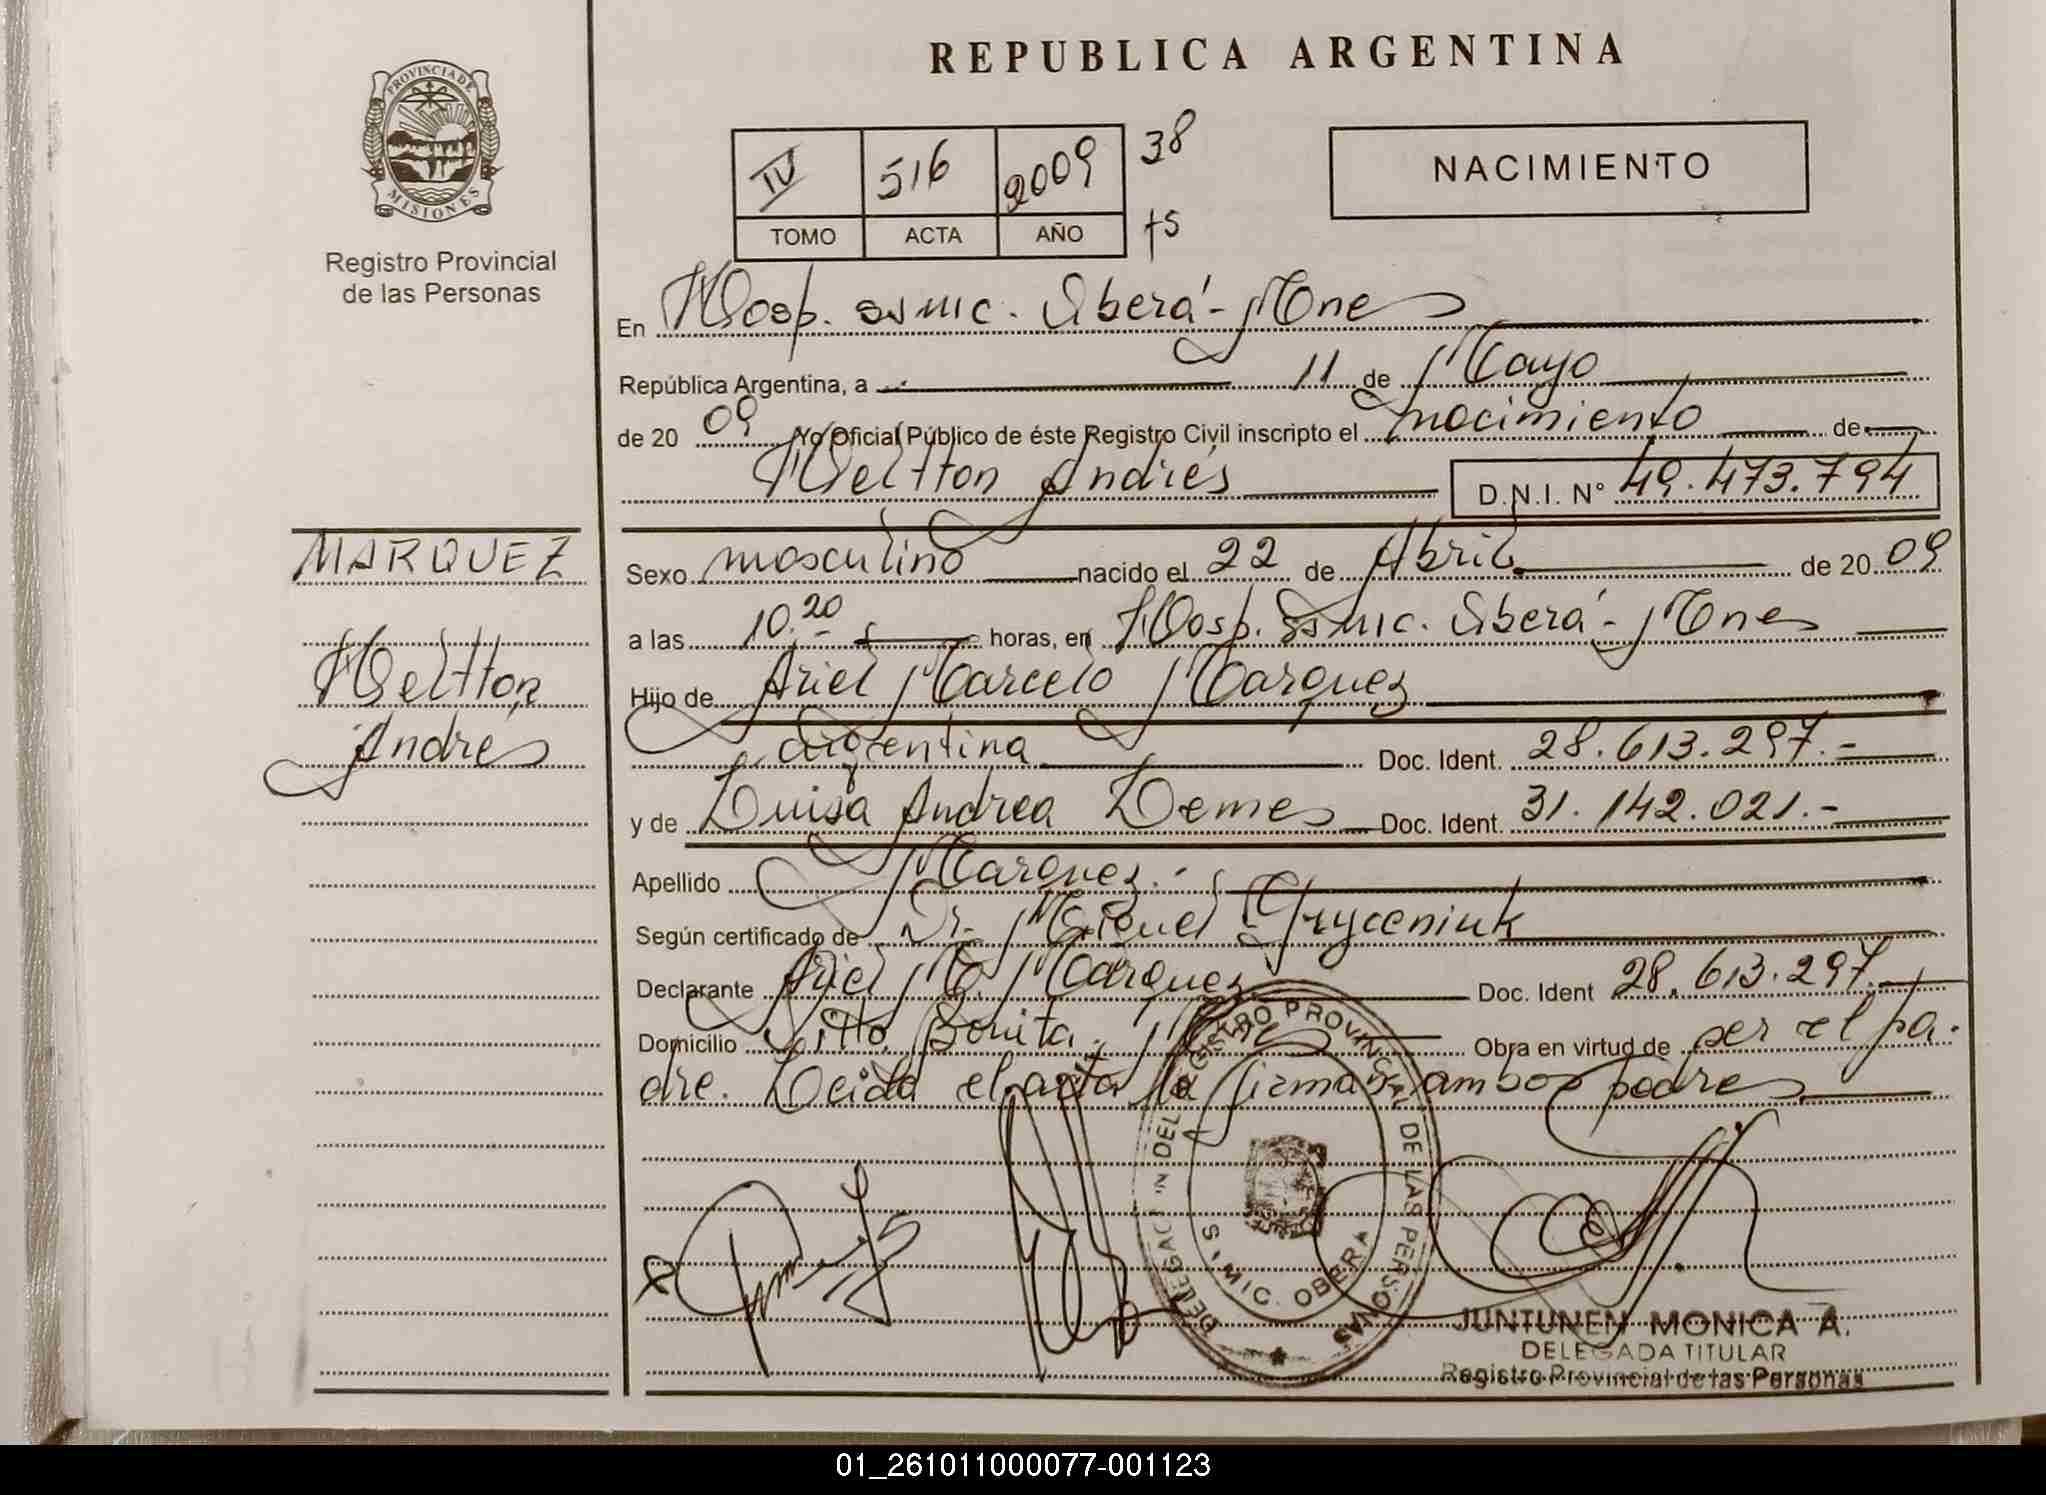 REPUBLICA ARGENTINA
PROVINCIA DE
MISIONES
Registro Provincial
de las Personas
IV 516 2009 38
TOMO ACTA AÑO 75
NACIMIENTO
En Hosp. ssmic. Oberá - Mnes
República Argentina, a 11 de Mayo
de 20 09 Yo Oficial Público de éste Registro Civil inscripto el nacimiento de
Heltton Andrés D.N.I. N° 49.473.794
MARQUEZ
Heltton
Andrés
Sexo masculino nacido el 22 de Abril de 20 09
a las 10.20 horas, en Hosp. ssmic. Oberá - Mnes
Hijo de Ariel Marcelo Marquez
argentina Doc. Ident. 28.613.297.-
y de Luisa Andrea Lemes Doc. Ident. 31.142.021.-
Apellido Marquez.-
Según certificado de Dr. Miguel Gryceniuk
Declarante Ariel M. Marquez Doc. Ident 28.613.297.-
Domicilio Bonita. Mnes Obra en virtud de ser el pa-
dre. Leida el acta la firman ambos padres
DELEGACI'N DEL REGISTRO PROVINCIAL DE LAS PERSONAS
S. MIC. OBERA
JUNTUNEN MONICA A.
DELEGADA TITULAR
Registro Provincial de las Personas
01_261011000077-001123